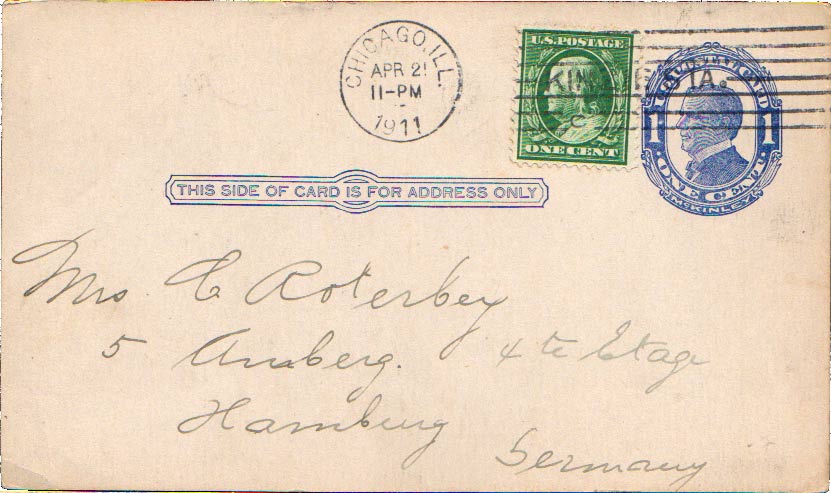 CHICAGO, ILL.
APR 21
11-PM
1911
U.S. POSTAGE
ONE CENT
KINZIE STA.
POSTAL CARD
1 1
ONE CENT
McKINLEY
THIS SIDE OF CARD IS FOR ADDRESS ONLY
Mrs. C Roterbey
5 Amberg. 4te Etage
Hamburg
Germany